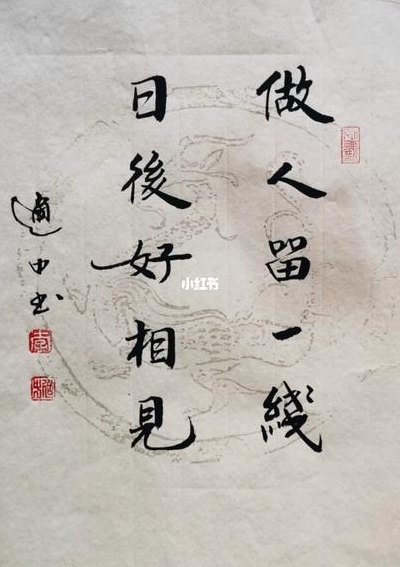 做人留一线
日後好相見
適中书
小红书